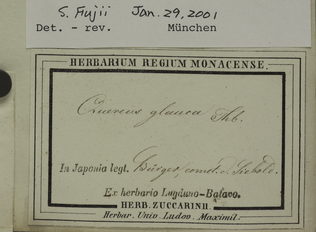 S. Fujii Jan. 29, 2001
Det. - rev. München
HERBARIUM REGIUM MONACENSE.
Quercus glauca Thb.
In Japonia legt. Bürger, comm. v. Siebold.
Ex herbario Lugduno-Batavo.
HERB. ZUCCARINII.
Herbar. Univ. Ludov. Maximil.